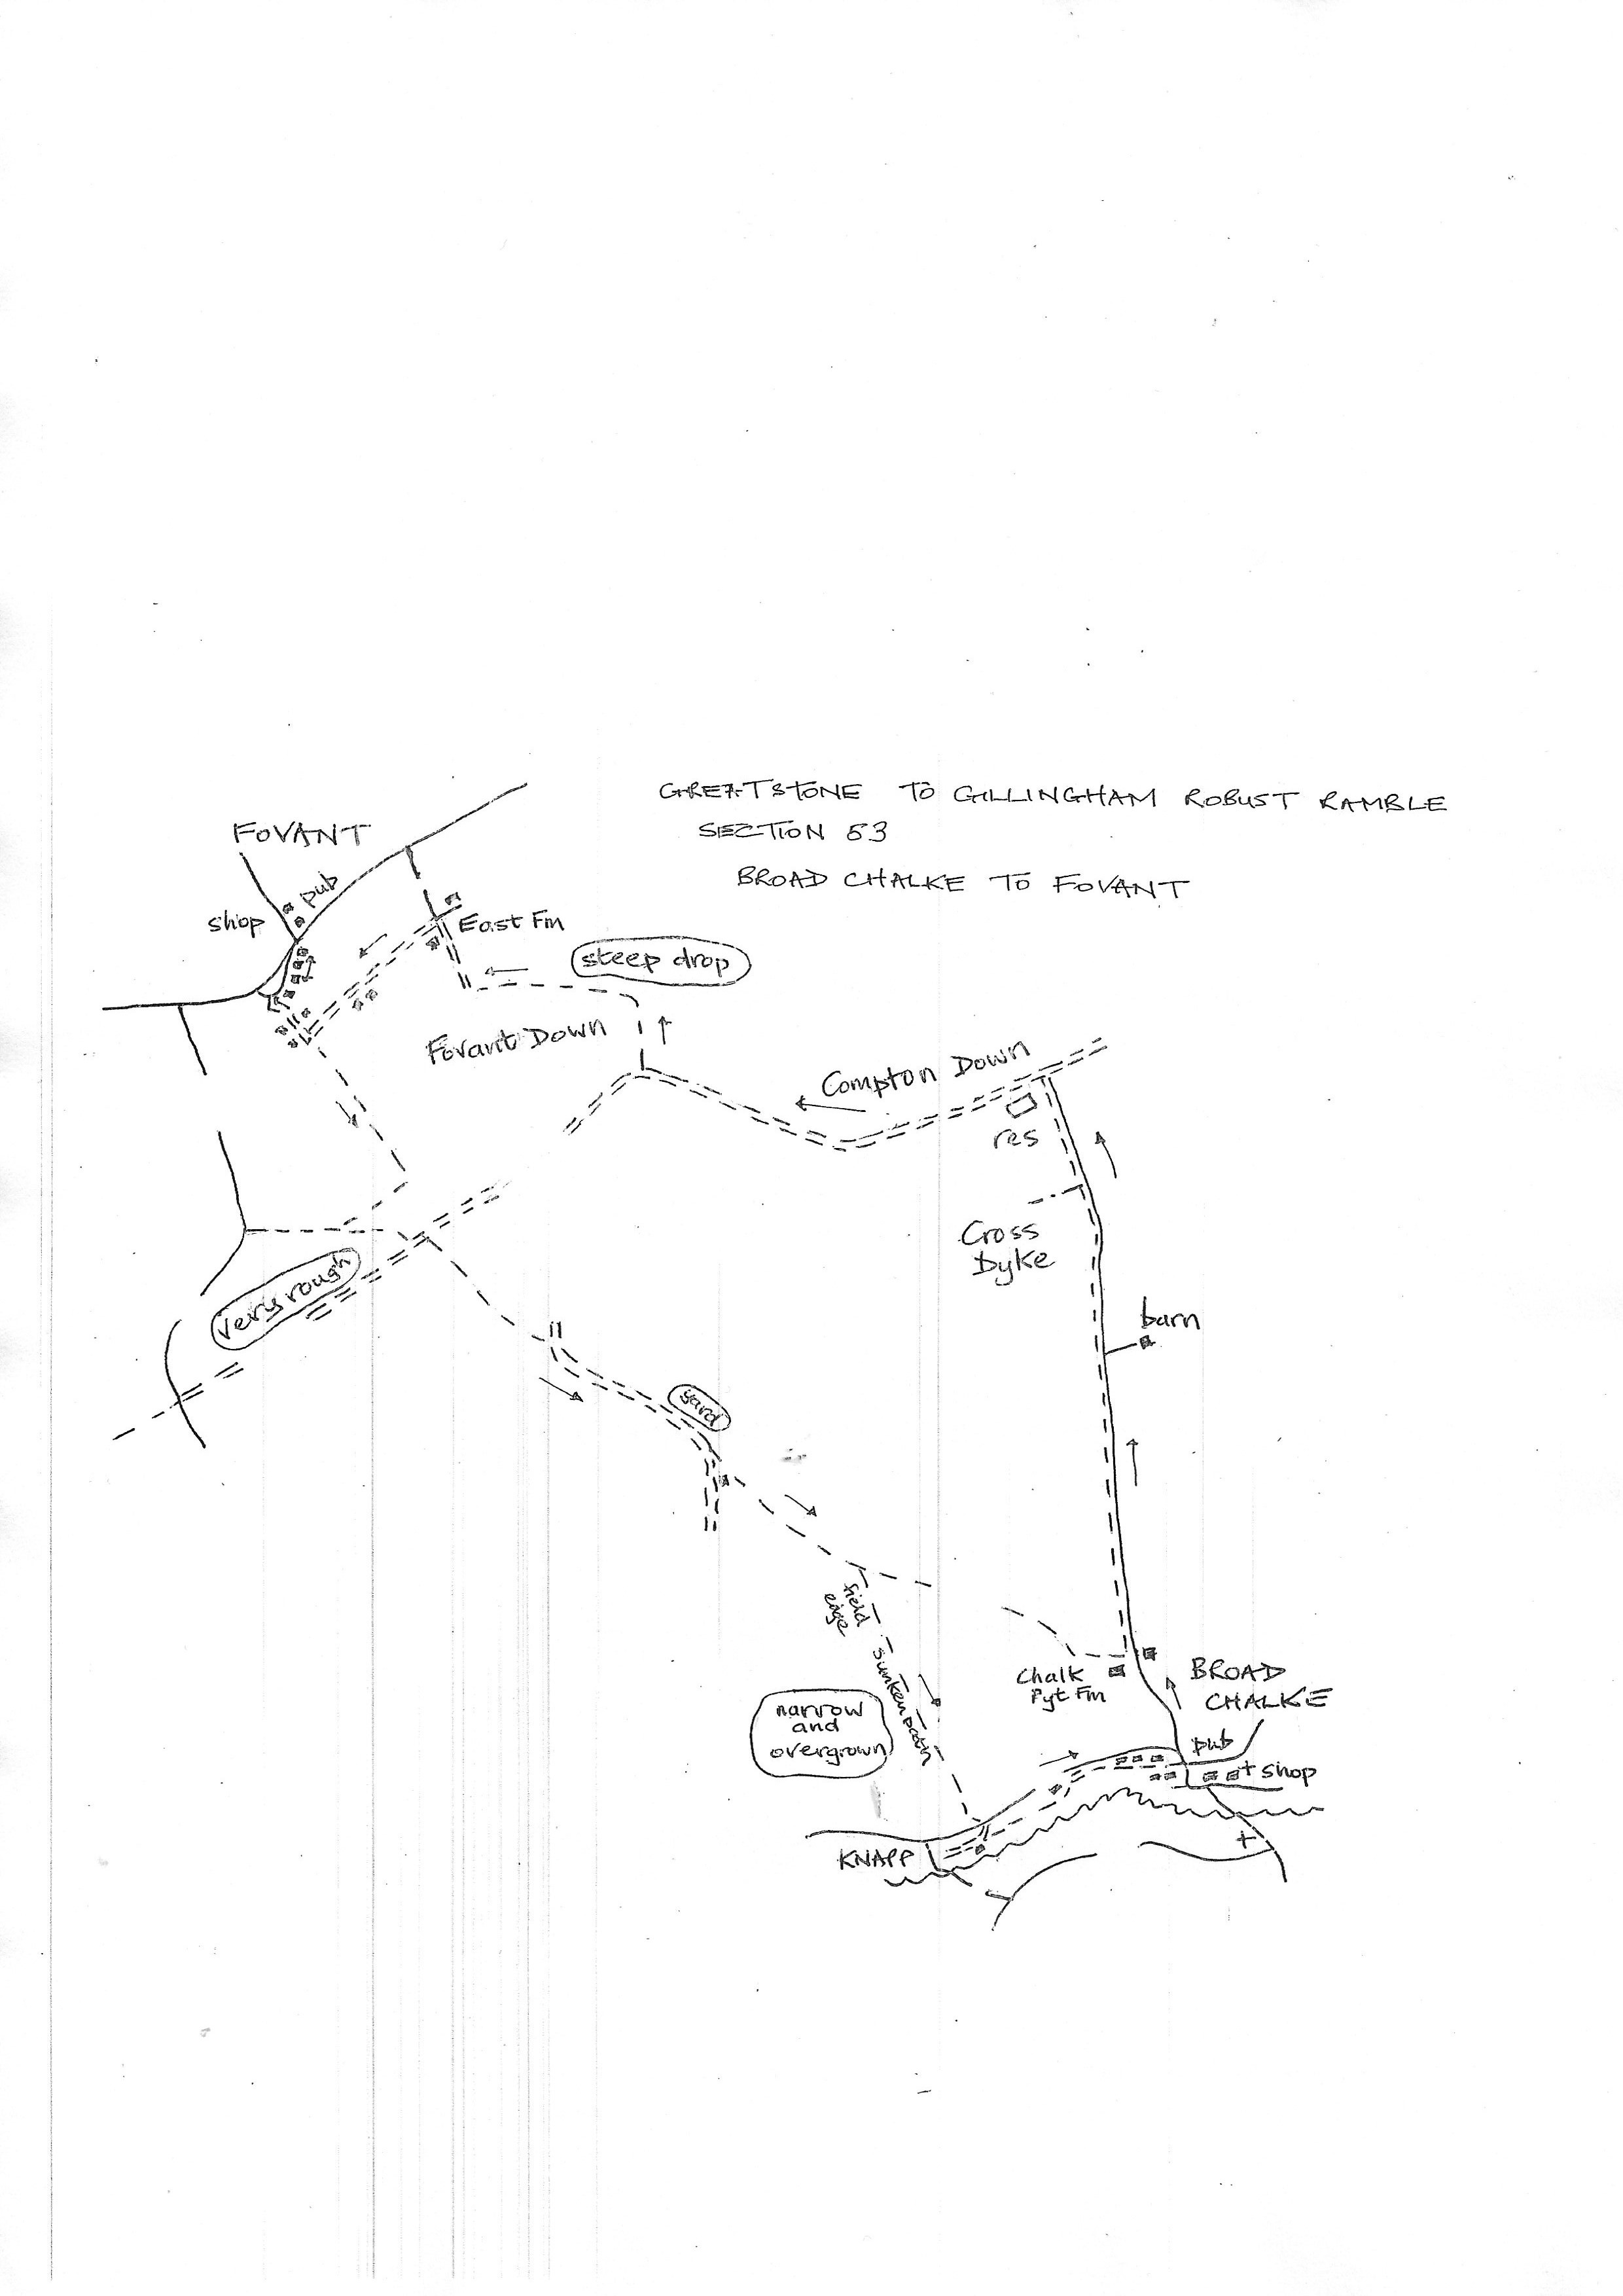 GREATSTONE TO GILLINGHAM ROBUST RAMBLE
SECTION 53
BROAD CHALKE TO FOVANT
FOVANT
pub
shop
East Fm
steep drop
Fovant Down
Compton Down
res
Cross
Dyke
very rough
barn
yard
field
edge
sunken path
narrow
and
overgrown
Chalk
Pyt Fm
BROAD
CHALKE
pub
shop
KNAPP